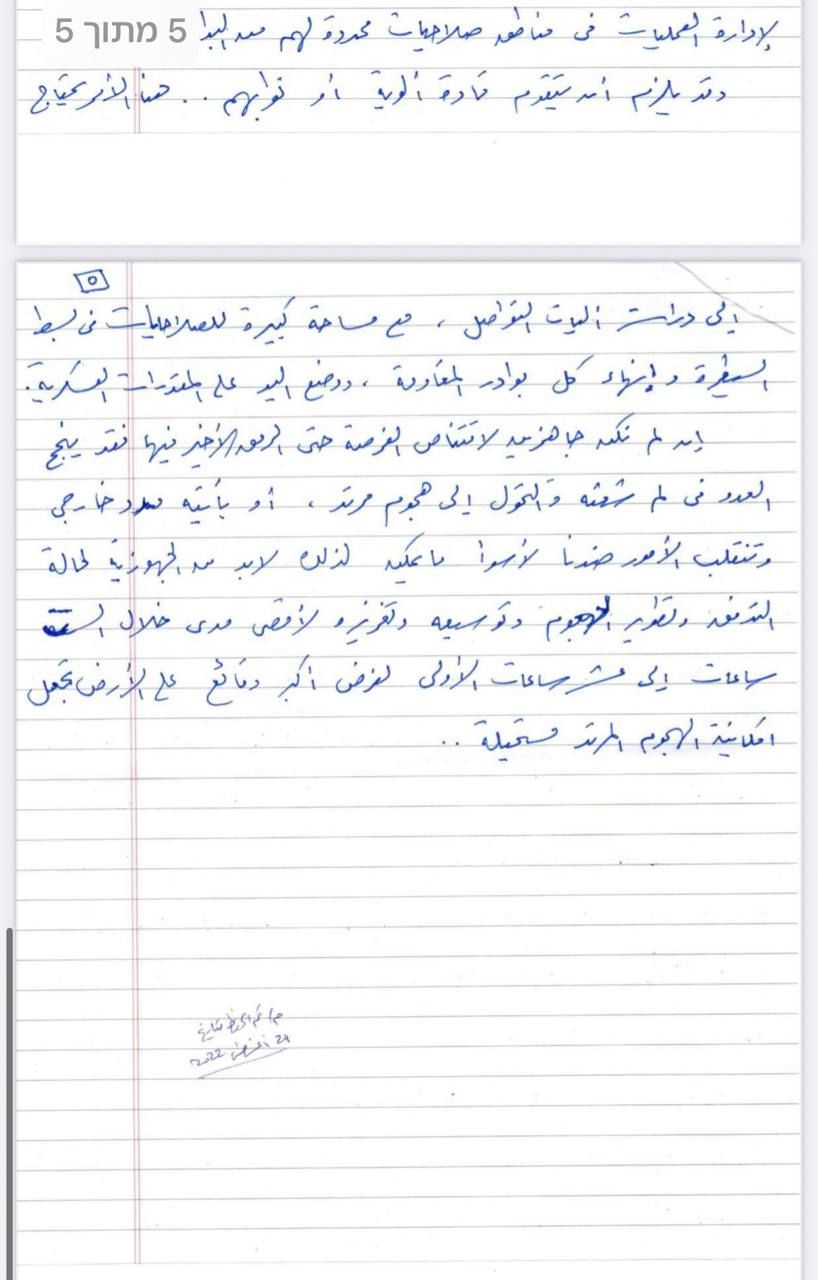 5 מתוך 5
لإدارة العمليات في مناطق صلاحيات محددة لهم من البدا
وقد يلزم أن يتقدم قادة ألوية أو نوابهم .. هنا الأمر يحتاج
٥
إلى دراسة آليات التواصل ، مع مساحة كبيرة للصلاحيات في بسط
السيطرة وإنهاء كل بوادر المقاومة ، ووضع اليد على المقدرات العسكرية .
إن لم نكن جاهزين لاقتناص الفرصة حتى الرمق الأخير فيها فقد ينجح
العدو في لم شعثه والتحول إلى هجوم مرتد ، أو يأتيه مدد خارجي
وتنقلب الأمور ضدنا لأسوأ ما يمكن لذلك لابد من الجهوزية لحالة
التدفق وتطوير الهجوم وتوسيعه وتعزيزه لأقصى مدى خلال الست
ساعات إلى عشر ساعات الأولى لفرض أكبر وقائع على الأرض تجعل
امكانية الهجوم المرتد مستحيلة ..
٢٤ أغسطس 2022